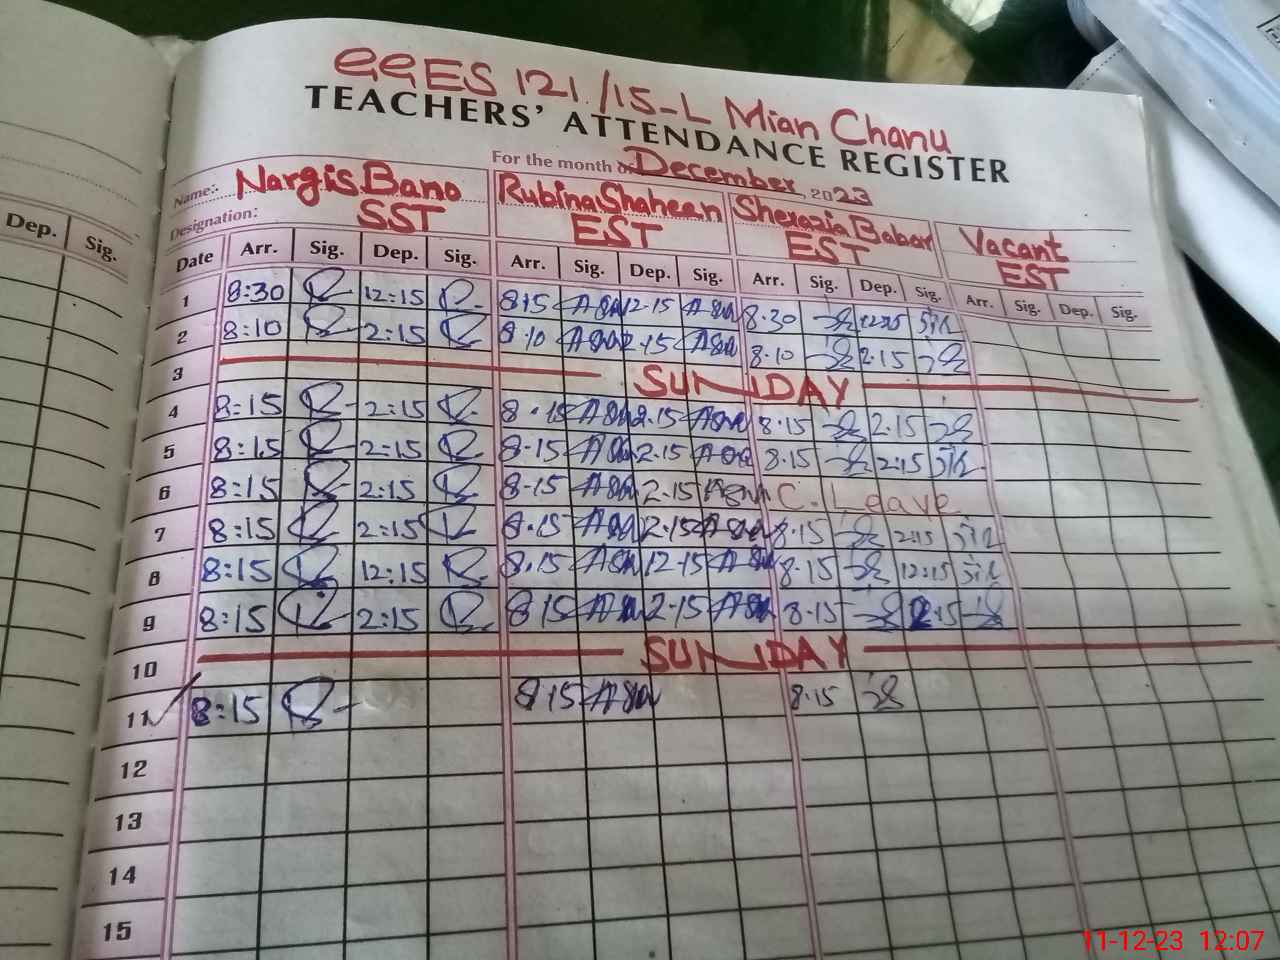 GGES 121/15-L Mian Chanu
TEACHERS' ATTENDANCE REGISTER
For the month of December, 2023
Name: Nargis Bano Rubina Shaheen Sherazia Babar Vacant
Designation: SST EST EST EST
Dep. Sig.
Date Arr. Sig. Dep. Sig. Arr. Sig. Dep. Sig. Arr. Sig. Dep. Sig. Arr. Sig. Dep. Sig.
1 8:30 12:15 8:15 12-15 8-30 12:15
2 8:10 2:15 8:10 2-15 8-10 2:15
3 SUNDAY
4 8:15 2:15 8-15 2-15 8-15 2-15
5 8:15 2:15 8-15 2-15 8-15 2:15
6 8:15 2:15 8-15 2-15 C. Leave
7 8:15 2:15 8-15 2-15 8-15 2:15
8 8:15 12:15 8.15 12-15 8-15 12:15
9 8:15 2:15 8 15 2-15 8-15 2:15
10 SUNDAY
11 8:15 8 15 8-15
12
13
14
15
11-12-23 12:07